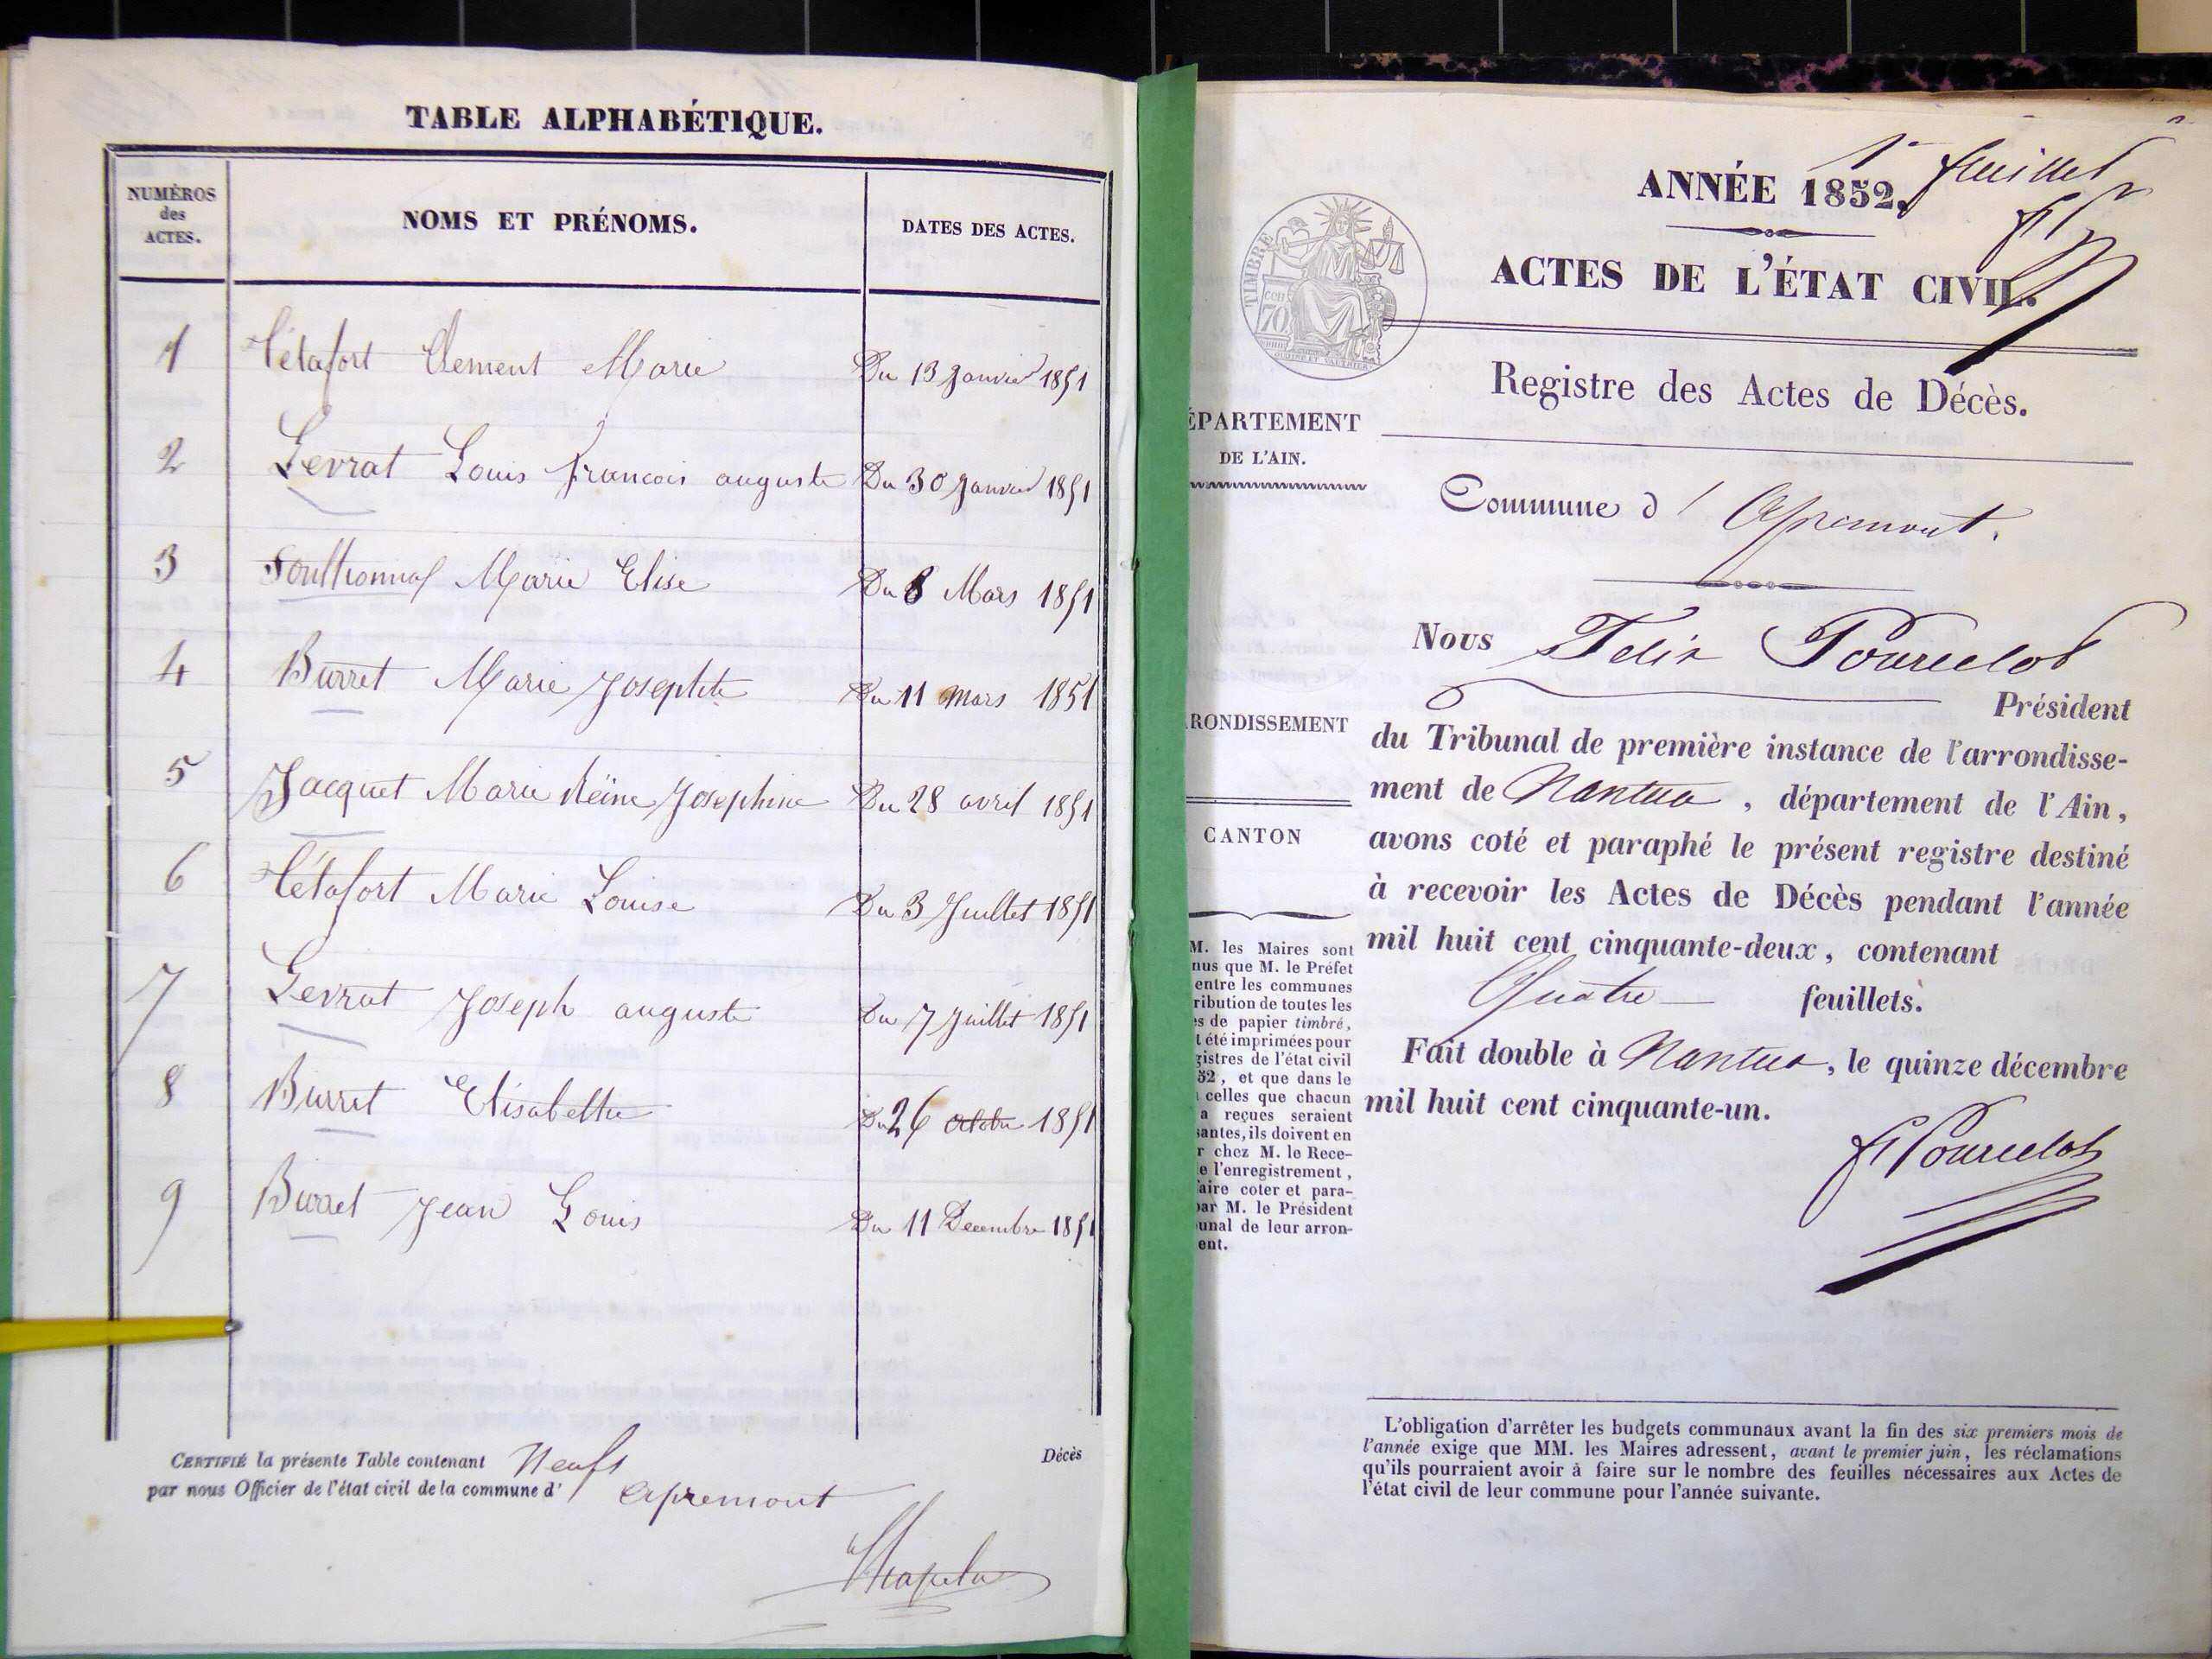 TABLE ALPHABÉTIQUE.
NUMÉROS des ACTES. NOMS ET PRÉNOMS. DATES DES ACTES.
1 Tétafort Clement Marie Du 13 Janvier 1851
2 Levrat Louis francois auguste Du 30 Janvier 1851
3 Marie Elise Du 8 Mars 1851
4 Burret Marie Josephte Du 11 mars 1851
5 Jacquet Marie Reine Josephine Du 28 avril 1851
6 Tétafort Marie Louise Du 3 Juillet 1851
7 Levrat Joseph auguste Du 7 Juillet 1851
8 Burret Elisabethe Du 26 octobre 1851
9 Burret Jean Louis Du 11 Decembre 1851
CERTIFIÉ la présente Table contenant Neufs Décès
par nous Officier de l'état civil de la commune d' apremont
1er feuillet
ANNÉE 1852.
ACTES DE L'ÉTAT CIVIL.
TIMBRE
70
Registre des Actes de Décès.
ÉPARTEMENT
DE L'AIN.
Commune d' Apremont.
RONDISSEMENT
CANTON
M. les Maires sont
nus que M. le Préfet
entre les communes
ribution de toutes les
s de papier timbré,
t été imprimées pour
gistres de l'état civil
52, et que dans le
celles que chacun
a reçues seraient
santes, ils doivent en
r chez M. le Rece-
e l'enregistrement,
aire coter et para-
par M. le Président
unal de leur arron-
ent.
Nous Felix Pourcelot
Président
du Tribunal de première instance de l'arrondisse-
ment de Nantua, département de l'Ain,
avons coté et paraphé le présent registre destiné
à recevoir les Actes de Décès pendant l'année
mil huit cent cinquante-deux, contenant
Quatre feuillets.
Fait double à Nantua, le quinze décembre
mil huit cent cinquante-un.
F Pourcelot
L'obligation d'arrêter les budgets communaux avant la fin des six premiers mois de
l'année exige que MM. les Maires adressent, avant le premier juin, les réclamations
qu'ils pourraient avoir à faire sur le nombre des feuilles nécessaires aux Actes de
l'état civil de leur commune pour l'année suivante.